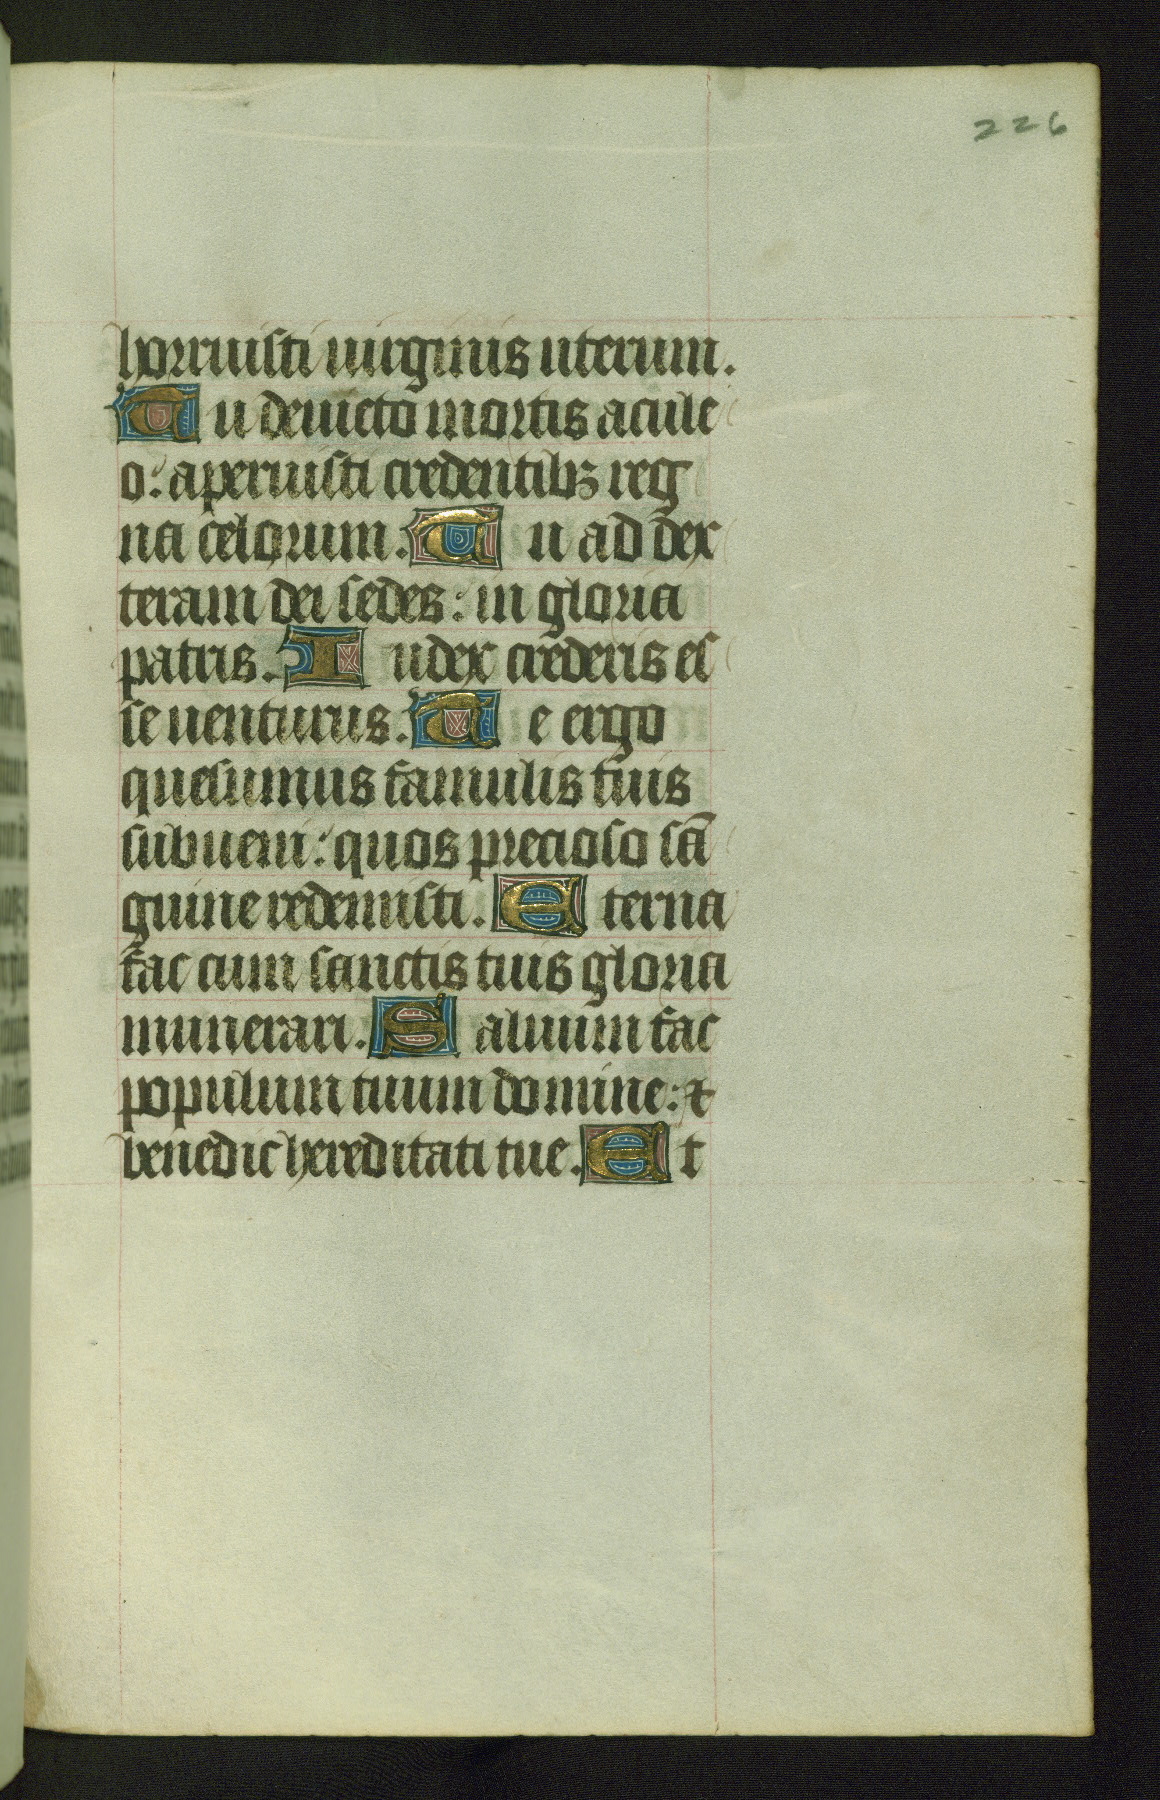 226
horruisti uirginis uterum.
Tu deuicto mortis acule
o: aperuisti credentibꝫ reg
na celorum. Tu ad dex
teram dei sedes: in gloria
patris. Iudex crederis es
se uenturus. Te ergo
quesumus famulis tuis
subueni: quos precioso sā
guine redemisti. Eterna
fac cum sanctis tuis gloria
munerari. Saluum fac
populum tuum domine: ⁊
benedic hereditati tue. Et